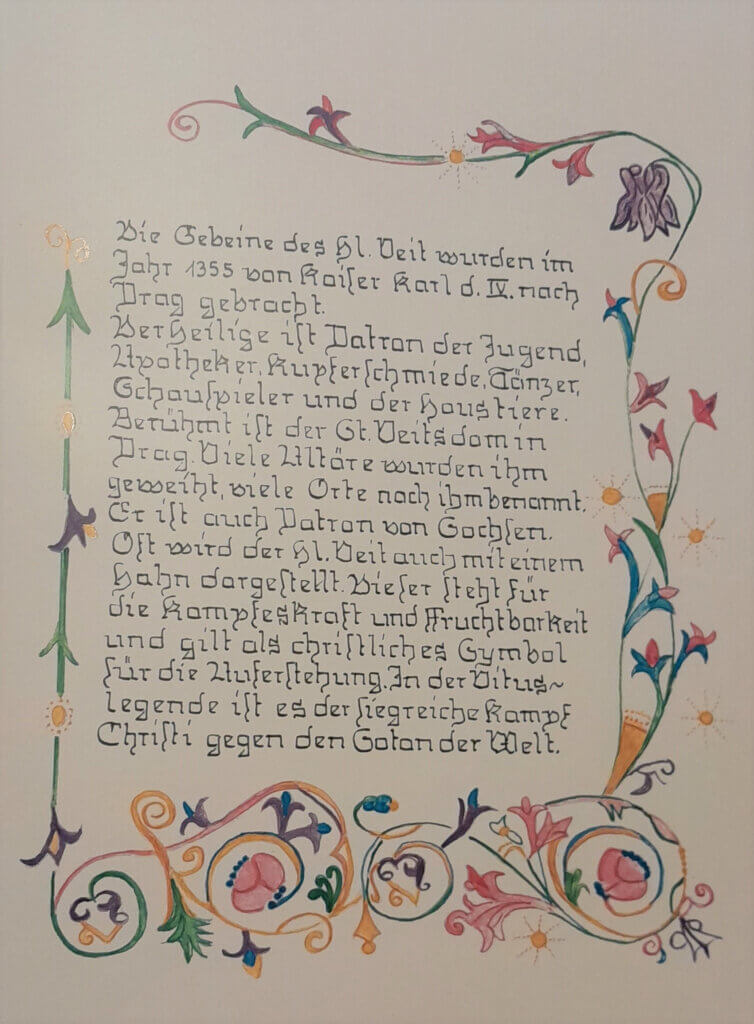 Die Gebeine des Hl. Veit wurden im
Jahr 1355 von Kaiser Karl d. IV. nach
Prag gebracht.
Der Heilige ist Patron der Jugend,
Apotheker, Kupferschmiede, Tänzer,
Schauspieler und der Haustiere.
Berühmt ist der St. Veitsdom in
Prag. Viele Altäre wurden ihm
geweiht, viele Orte nach ihm benannt.
Er ist auch Patron von Sachsen.
Oft wird der Hl. Veit auch mit einem
Hahn dargestellt. Dieser steht für
die Kampfeskraft und Fruchtbarkeit
und gilt als christliches Symbol
für die Auferstehung. In der Vitus~
legende ist es der siegreiche Kampf
Christi gegen den Satan der Welt.